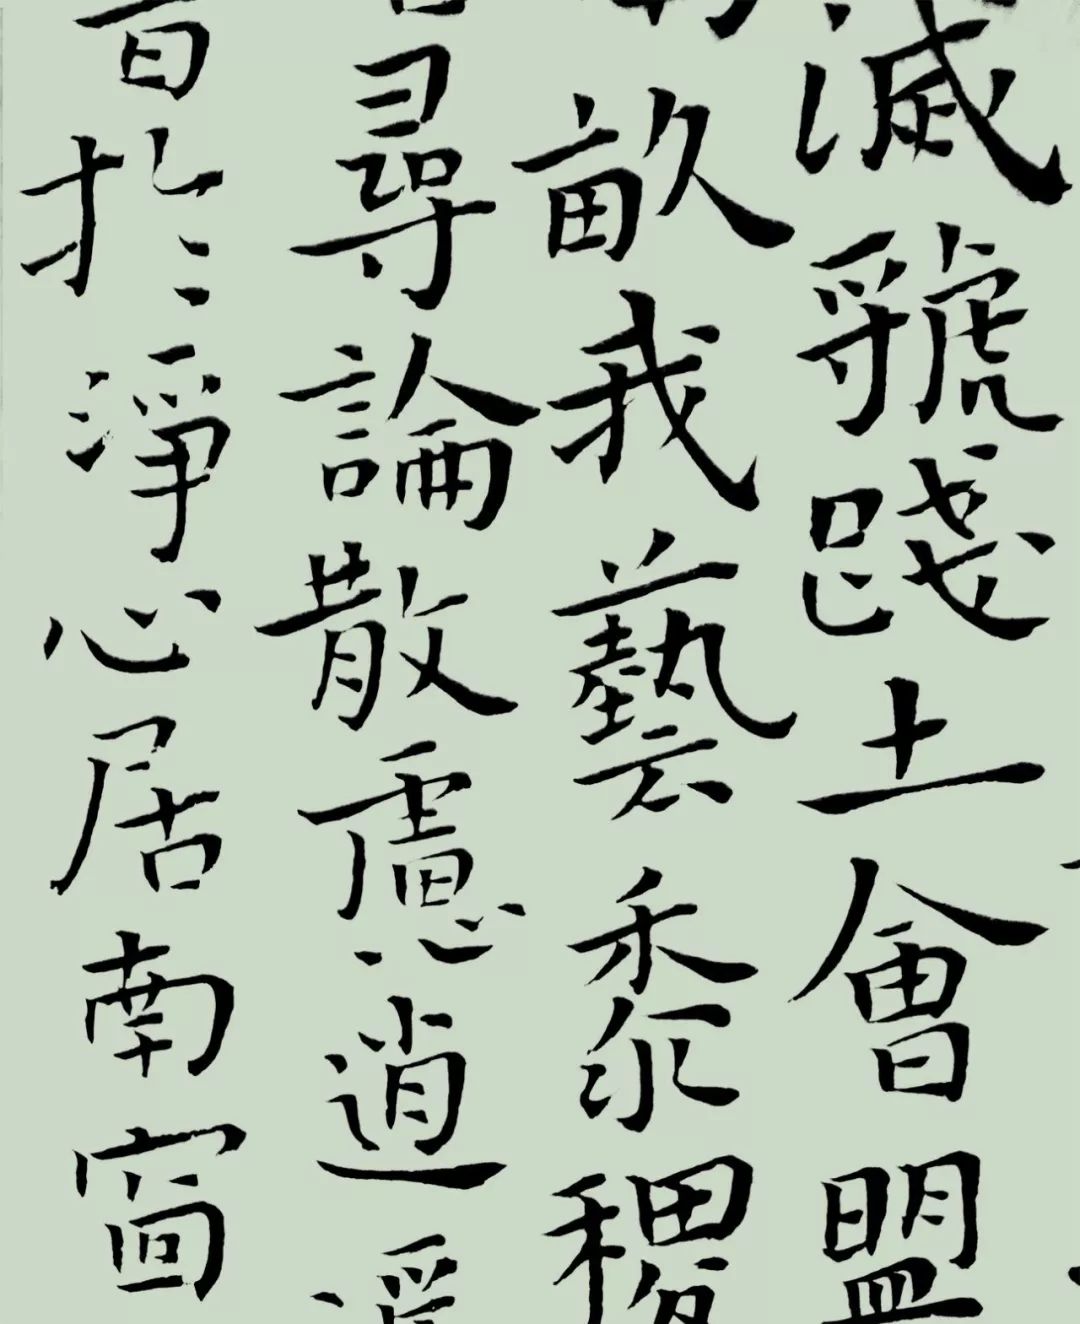 滅虢踐土會盟
畝我藝黍稷
尋論散慮逍遙
於淨心居南窗